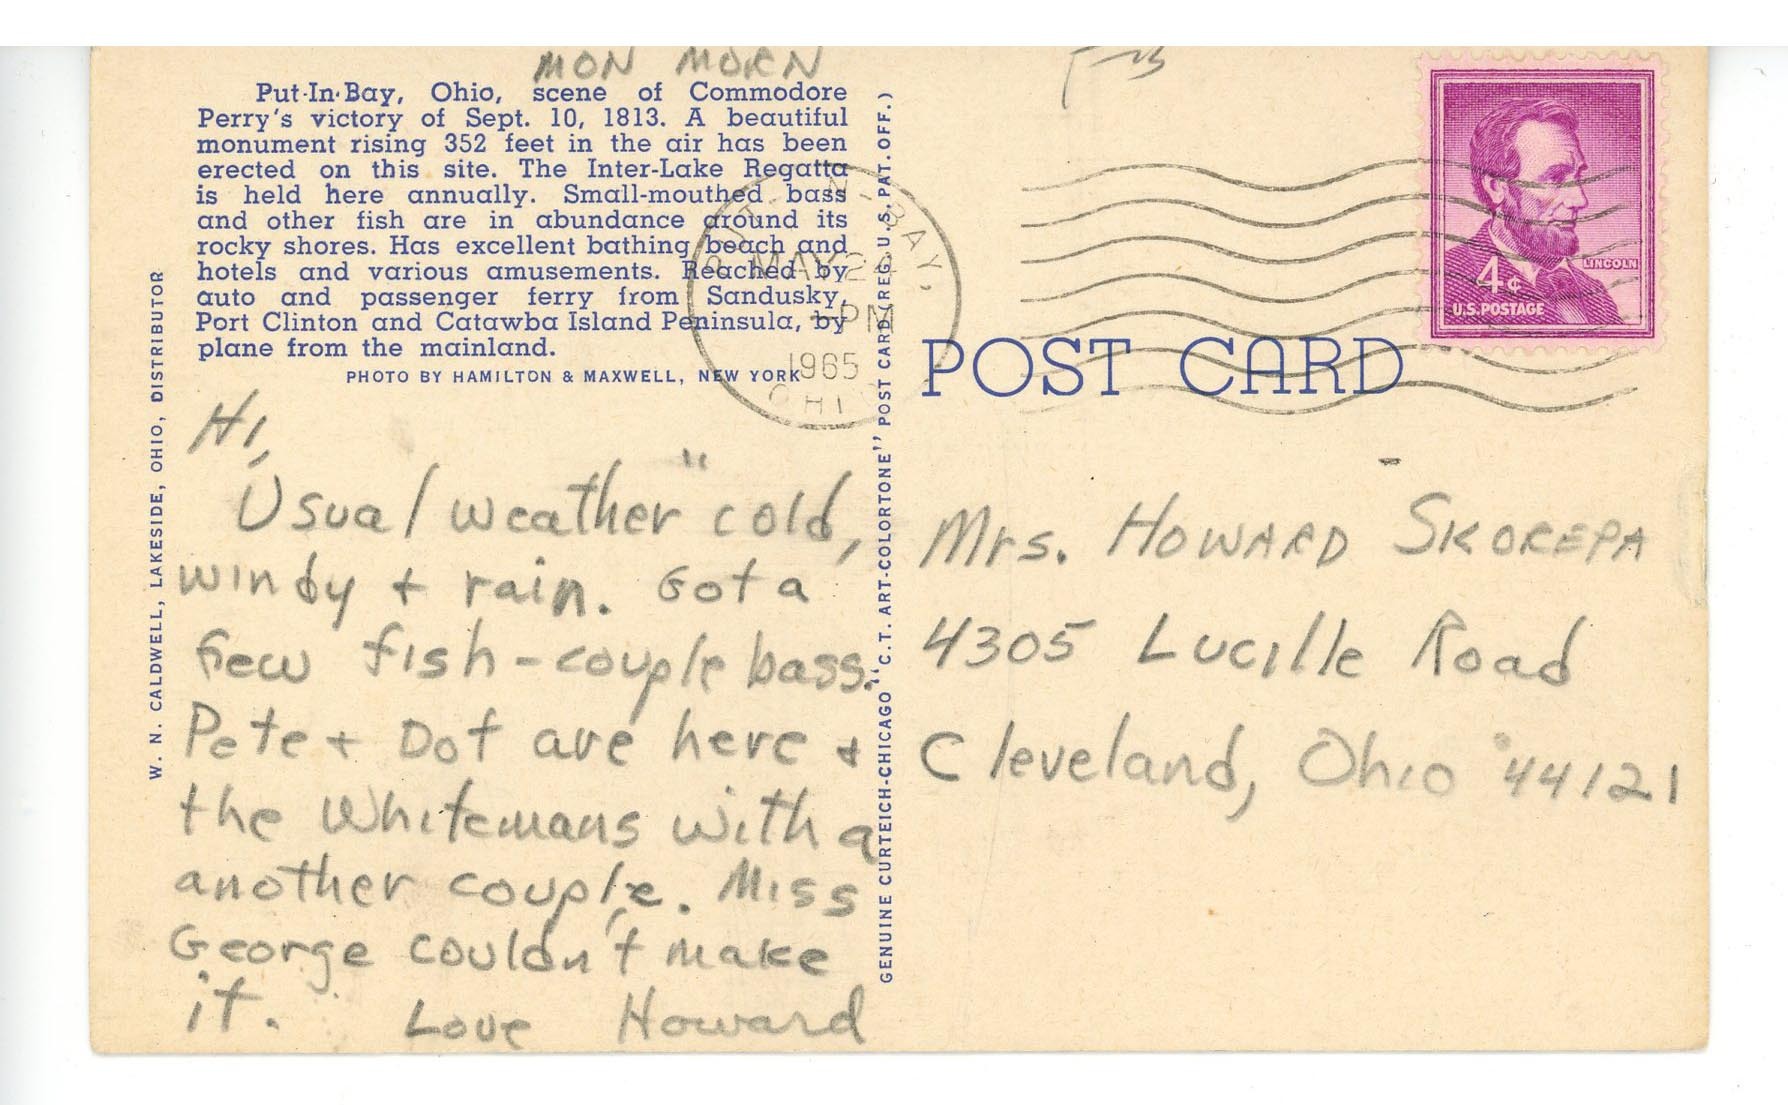 MON MORN
Put-In-Bay, Ohio, scene of Commodore
Perry's victory of Sept. 10, 1813. A beautiful
monument rising 352 feet in the air has been
erected on this site. The Inter-Lake Regatta
is held here annually. Small-mouthed bass
and other fish are in abundance around its
rocky shores. Has excellent bathing beach and
hotels and various amusements. Reached by
auto and passenger ferry from Sandusky,
Port Clinton and Catawba Island Peninsula, by
plane from the mainland.
PHOTO BY HAMILTON & MAXWELL, NEW YORK
W. N. CALDWELL, LAKESIDE, OHIO, DISTRIBUTOR
Hi,
Usual weather " cold,
windy + rain. Got a
few fish - couple bass.
Pete + Dot are here +
the Whitemans with a
another couple. Miss
George couldn't make
it. Love Howard
GENUINE CURTEICH-CHICAGO "C.T. ART-COLORTONE" POST CARD (REG. U.S. PAT. OFF.)
PUT-IN-BAY,
MAY 24
PM
1965
OHIO
LINCOLN
4¢
U.S. POSTAGE
POST CARD
Mrs. HOWARD SKOREPA
4305 Lucille Road
Cleveland, Ohio 44121